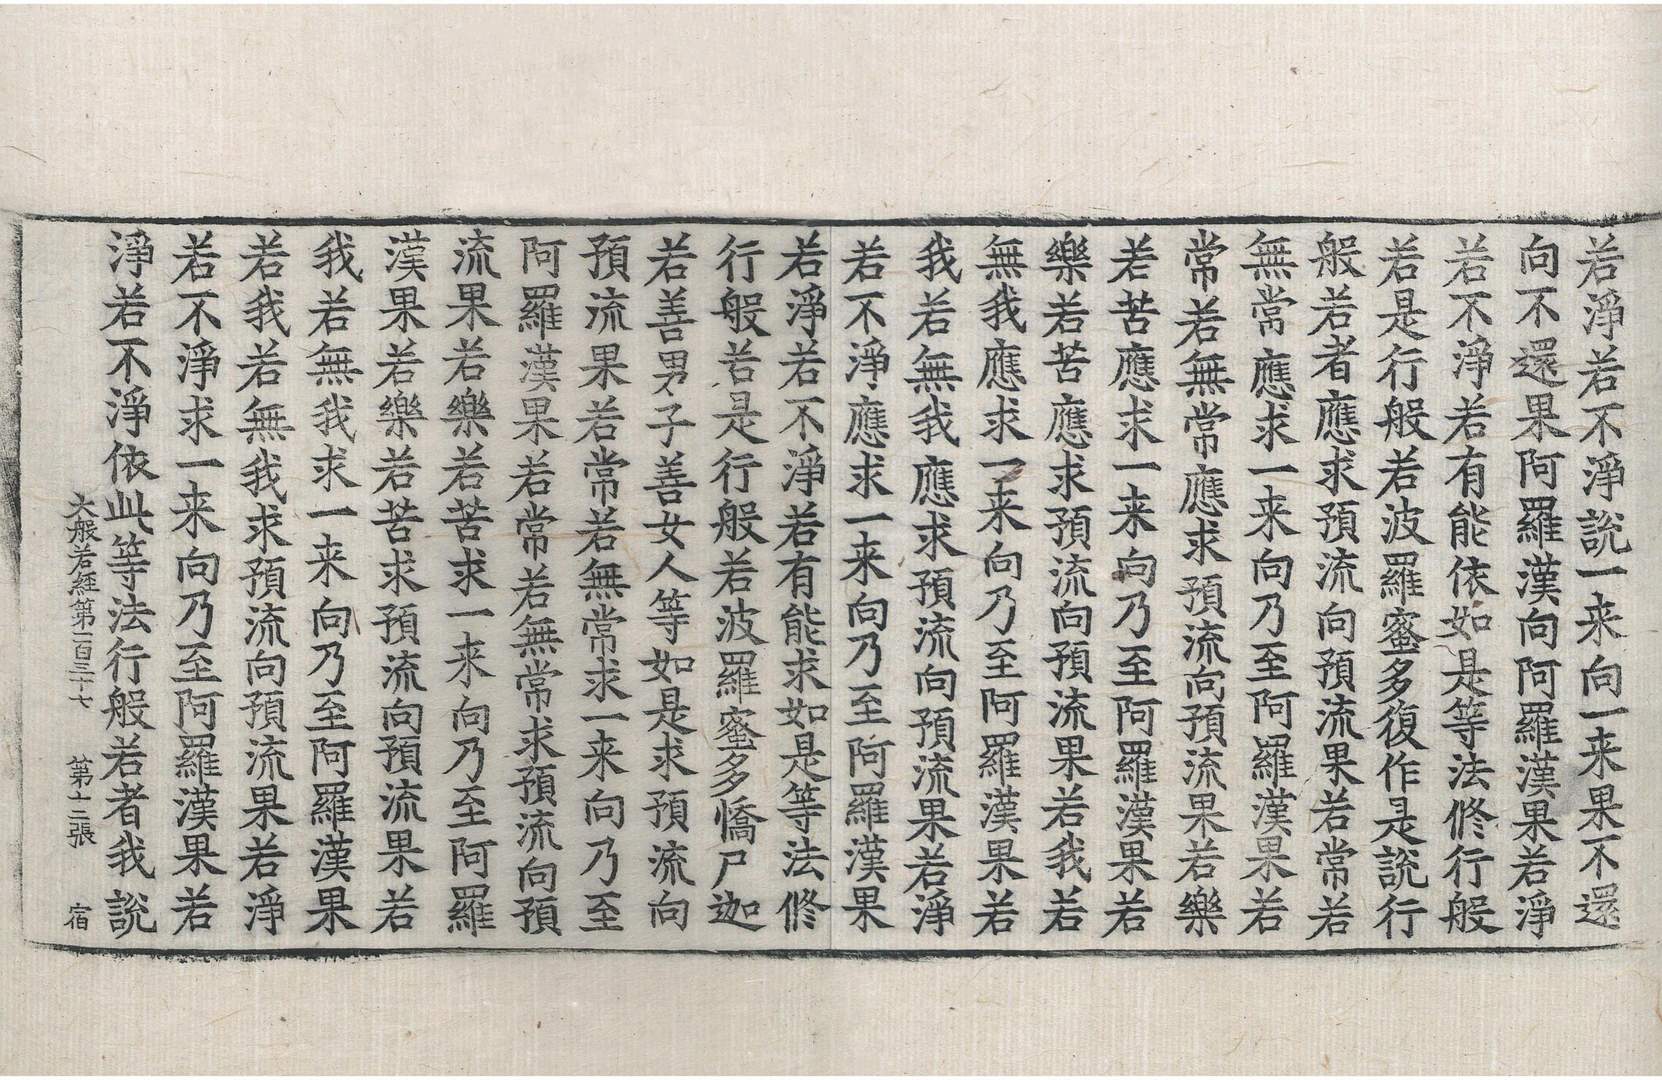 若淨若不淨說一来向一来果不還
向不還果阿羅漢向阿羅漢果若淨
若不淨若有能依如是等法修行般
若是行般若波羅蜜多復作是說行
般若者應求預流向預流果若常若
無常應求一来向乃至阿羅漢果若
常若無常應求預流向預流果若樂
若苦應求一来向乃至阿羅漢果若
樂若苦應求預流向預流果若我若
無我應求一来向乃至阿羅漢果若
我若無我應求預流向預流果若淨
若不淨應求一来向乃至阿羅漢果
若淨若不淨若有能求如是等法修
行般若是行般若波羅蜜多憍尸迦
若善男子善女人等如是求預流向
預流果若常若無常求一来向乃至
阿羅漢果若常若無常求預流向預
流果若樂若苦求一来向乃至阿羅
漢果若樂若苦求預流向預流果若
我若無我求一来向乃至阿羅漢果
若我若無我求預流向預流果若淨
若不淨求一来向乃至阿羅漢果若
淨若不淨依此等法行般若者我說
大般若經第一百三十七 第十二張 宿